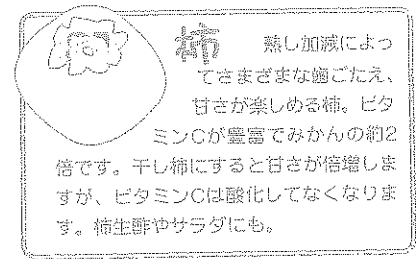 柿
熟し加減によっ
てさまざまな歯ごたえ、
甘さが楽しめる柿。ビタ
ミンCが豊富でみかんの約2
倍です。干し柿にすると甘さが倍増しま
すが、ビタミンCは酸化してなくなりま
す。柿生酢やサラダにも。